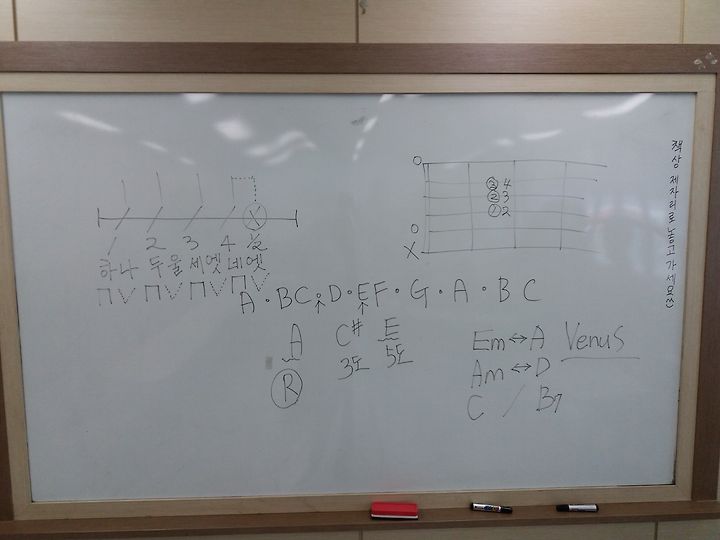 1 2 3 4 1/2
하나 두울 세엣 네엣
A · B C · D · E F · G · A · B C
A C# E
3도 5도
R
O
③ 4
② 3
① 2
O
X
Em ↔ A Venus
Am ↔ D
C / B7
책상 제자리로 놓고 가세요